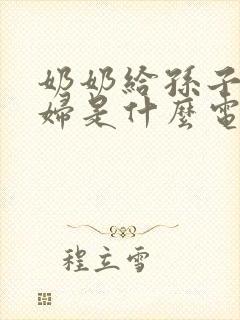 奶奶給孫子
婦是什麼電
程立雪